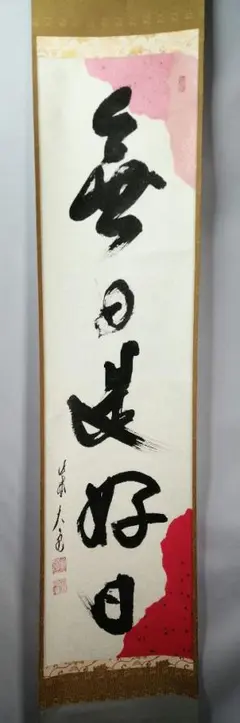 毎日是好日